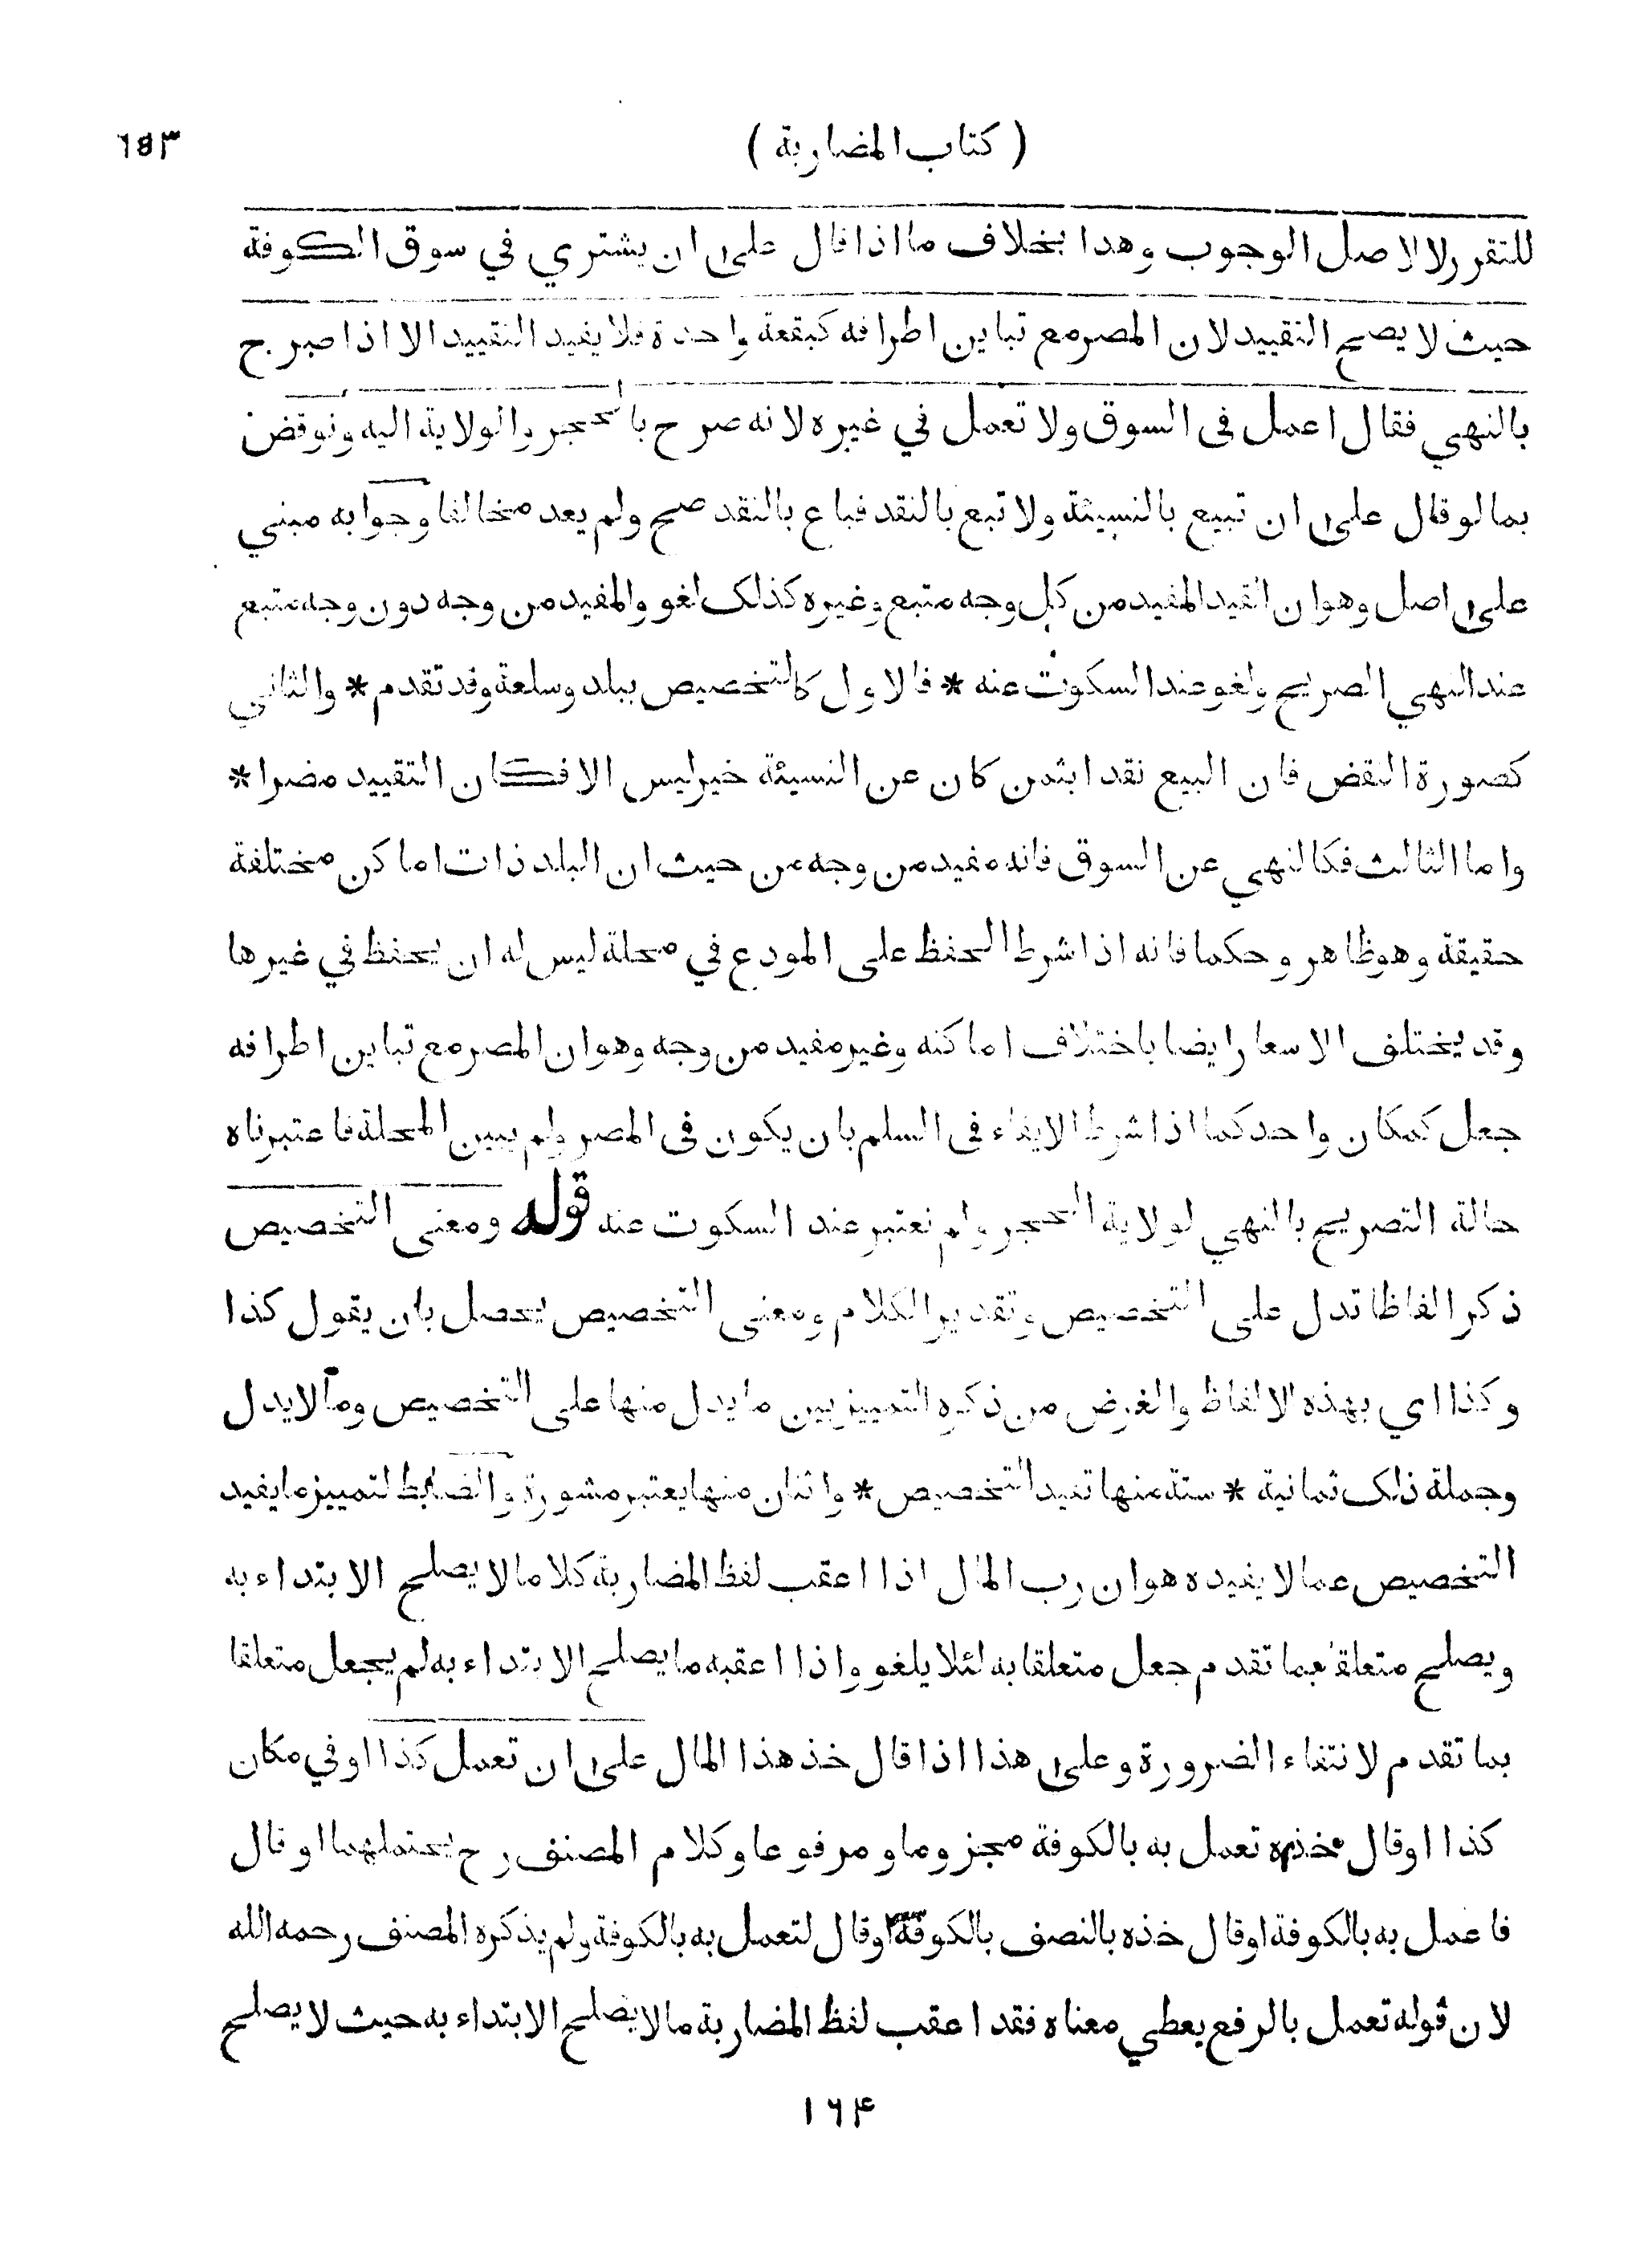 ( كتاب المضاربة )
٦٤٣
للتقرر لا لاصل الوجوب وهذا بخلاف ما اذا قال على ان يشتري في سوق الكوفة
حيث لا يصح التقييد لان المصر مع تباين اطرافه كبقعة واحدة فلا يفيد التقييد الا اذا صرح
بالنهي فقال اعمل فى السوق ولا تعمل في غيره لانه صرح بالحجر والولاية اليه ونوقض
بما لو قال على ان تبيع بالنسيئة ولا تبع بالنقد فباع بالنقد صح ولم يعد مخالفا وجوابه مبني
على اصل وهو ان القيد المفيد من كل وجه متبع وغيره كذلك لغو والمفيد من وجه دون وجه متبع
عند النهي الصريح ولغو عند السكوت عنه * فالاول كالتخصيص ببلد وسلعة وقد تقدم * والثاني
كصورة النقض فان البيع نقدا بثمن كان عن النسيئة خير ليس الا فكان التقييد مضرا *
واما الثالث فكالنهي عن السوق فانه مفيد من وجه من حيث ان البلد ذات اماكن مختلفة
حقيقة وهو ظاهر وحكما فانه اذا شرط الحفظ على المودع في محلة ليس له ان يحفظ في غيرها
وقد يختلف الاسعار ايضا باختلاف اماكنه وغير مفيد من وجه وهو ان المصر مع تباين اطرافه
جعل كمكان واحد كما اذا شرط الايفاء فى السلم بان يكون فى المصر ولم يبين المحلة فاعتبرناه
حالة التصريح بالنهي لولاية الحجر ولم نعتبر عند السكوت عنه قوله ومعنى التخصيص
ذكر الفاظا تدل على التخصيص وتقدير الكلام ومعنى التخصيص يحصل بان يقول كذا
وكذا اي بهذه الالفاظ والغرض من ذكره التمييز بين ما يدل منها على التخصيص وما لا يدل
وجملة ذلك ثمانية * ستة منها تفيد التخصيص * واثنان منها يعتبر مشورة والضابط لتمييز ما يفيد
التخصيص عما لا يفيده هو ان رب المال اذا اعقب لفظ المضاربة كلاما لا يصلح الابتداء به
ويصلح متعلقا بما تقدم جعل متعلقا به لئلا يلغو واذا اعقبه ما يصلح الابتداء به لم يجعل متعلقا
بما تقدم لانتفاء الضرورة وعلى هذا اذا قال خذ هذا المال على ان تعمل كذا او في مكان
كذا او قال خذه تعمل به بالكوفة مجزوما ومرفوعا وكلام المصنف رح يحتملهما او قال
فاعمل به بالكوفة او قال خذه بالنصف بالكوفة او قال لتعمل به بالكوفة ولم يذكره المصنف رحمه الله
لان قوله تعمل بالرفع يعطي معناه فقد اعقب لفظ المضاربة ما لا يصلح الابتداء به حيث لا يصلح
١٦۴